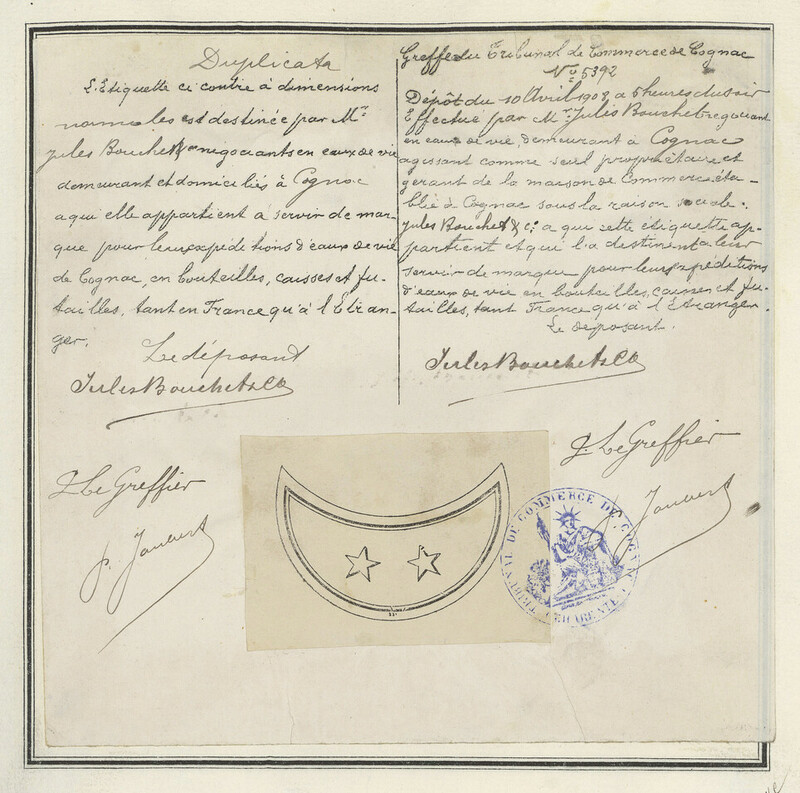 Duplicata
L'Etiquette ci contre à dimensions
normales est destinée par Mrs
Jules Bouchet & Co negociants en eaux de vie
demeurant et domiciliés à Cognac
a qui elle appartient a servir de mar-
que pour leurs expéditions d'eaux de vie
de Cognac, en bouteilles, caisses et fu-
tailles, tant en France qu'à l'Etran-
ger.
Le déposant
Jules Bouchet & Co
J. Le Greffier
p. Joubert
Greffe du Tribunal de Commerce de Cognac
No 5392
Dépôt du 10 Avril 1903 a 5 heures du soir
Effectué par Mr Jules Bouchet negociant
en eaux de vie, demeurant à Cognac
agissant comme seul propriétaire et
gerant de la maison de Commerce éta-
blie à Cognac sous la raison sociale:
Jules Bouchet & Cie a qui cette étiquette ap-
partient et qui l'a destinent a leur
servir de marque pour leurs expéditions
d'eaux de vie en bouteilles, caisses et fu-
tailles, tant France qu'à l'Etranger.
Le deposant.
Jules Bouchet & Co
J. Le Greffier
Joubert
TRIBUNAL DE COMMERCE DE COGNAC
CHARENTE